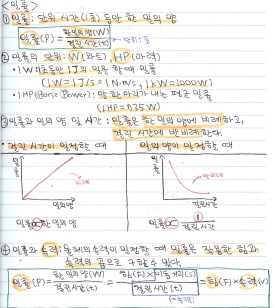 <일률>
① 일률: 단위 시간(1초) 동안 한 일의 양
일률(P) = 한일의양(W) / 걸린 시간(t) → 단위: 초
② 일률의 단위: W(와트), HP(마력)
• 1W: 1초동안 1J의 일을 할때 일률
(1W = 1J/s = 1N·m/s, 1kW = 1000W)
• 1HP(Horse Power): 말 한마리가 내는 평균 일률
(1HP = 735W)
③ 일률과 일의 양 및 시간: 일률은 한 일의 양에 비례하고,
걸린 시간에 반비례한다.
• 걸린 시간이 일정할 때
일의 양이 일정할 때
일률
비례
일의양
일률
반비례
걸린 시간
일률 ∝ 한 일의 양
일률 ∝ 1 / 걸린 시간
④ 일률과 속력: 물체의 속력이 일정할 때 일률은 작용한 힘과
속력의 곱으로 구할 수 있다.
일률(P) = 한 일의 양(W) / 걸린시간(t) = 힘(F) × 이동거리(s) / 걸린 시간(t) = 힘(F) × 속력(v)
→ 속력